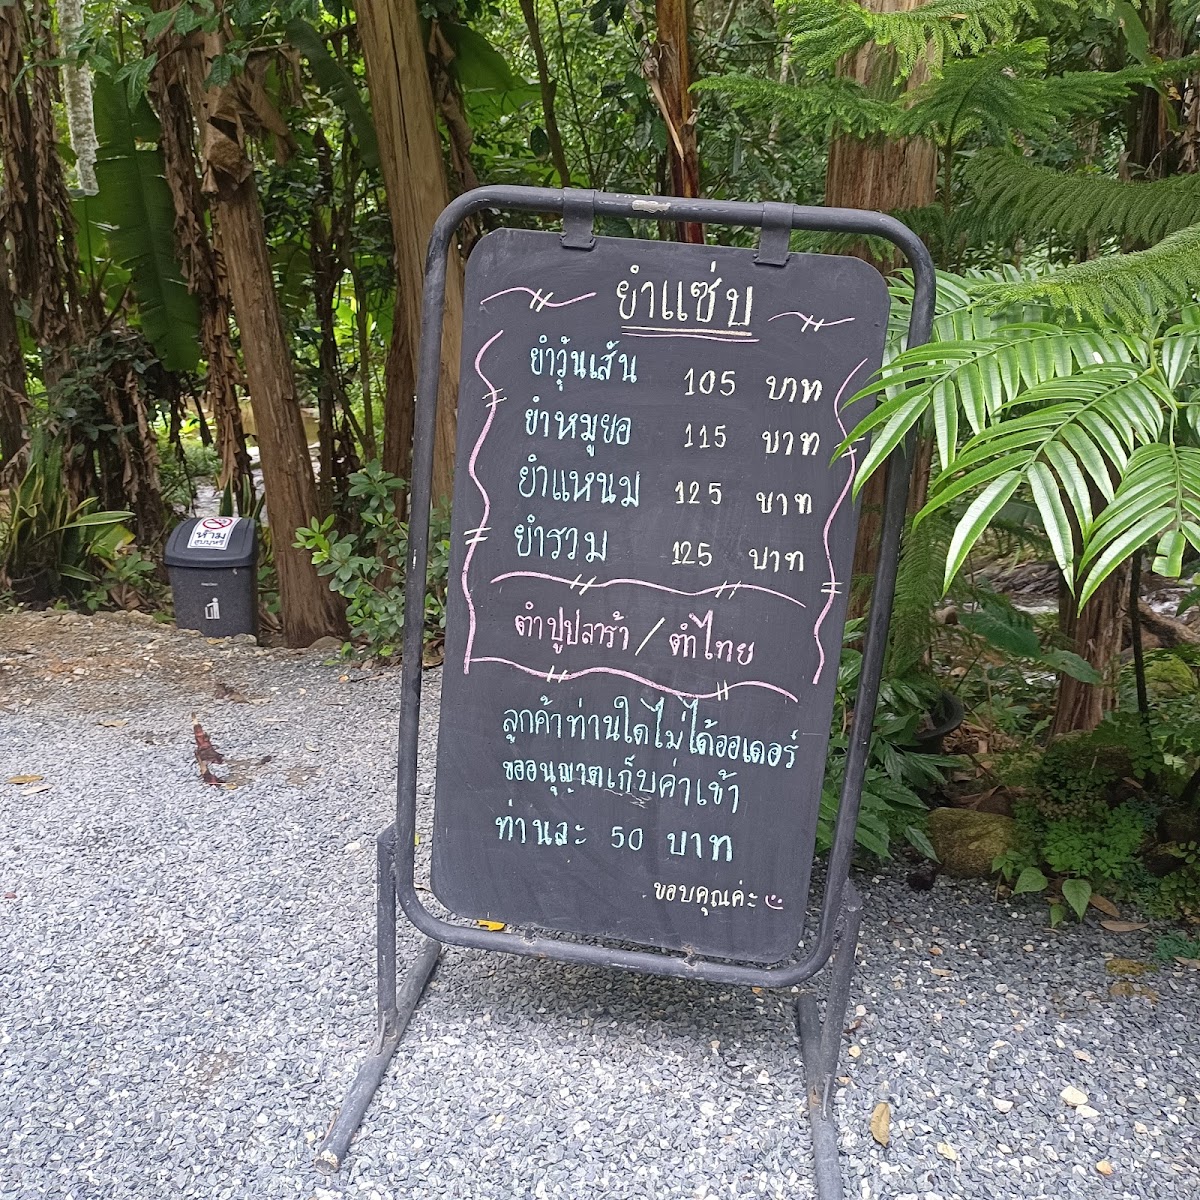 ยำแซ่บ
ยำวุ้นเส้น 105 บาท
ยำหมูยอ 115 บาท
ยำแหนม 125 บาท
ยำรวม 125 บาท
ตำปูปลาร้า / ตำไทย
ลูกค้าท่านใดไม่ได้ออเดอร์
ขออนุญาตเก็บค่าเข้า
ท่านละ 50 บาท
ขอบคุณค่ะ
ห้าม
สูบบุหรี่